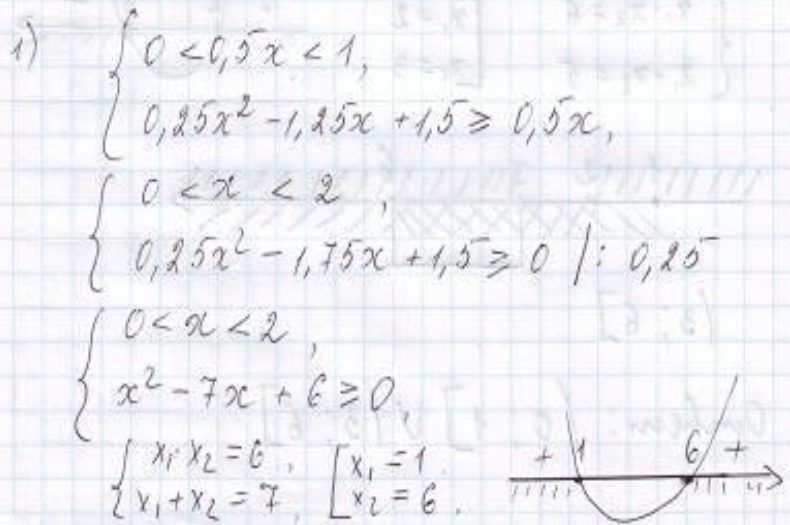 1) { 0 < 0,5x < 1,
0,25x² - 1,25x + 1,5 ≥ 0,5x,
{ 0 < x < 2,
0,25x² - 1,75x + 1,5 ≥ 0 |: 0,25
{ 0 < x < 2,
x² - 7x + 6 ≥ 0,
{ x₁·x₂ = 6, [ x₁ = 1 + 1 6 +
x₁ + x₂ = 7, x₂ = 6.